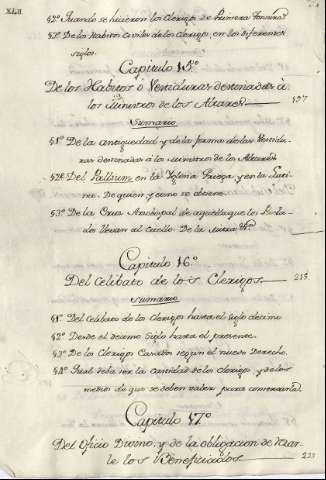 XLII
§2º Quando se hicieron los Clerigos de Primera Tonsura
§3º De los Habitos Civiles de los Clerigos, en los diferentes
siglos.
Capitulo 15º
De los Habitos ò Vestiduras destinadas à
los Ministros de los Altares 197
Sumario
§1º De la antiguedad y de la forma de las Vestidu-
ras destinadas à los Ministros de los Altares
§2º Del Pallium en la Iglesia Griega y en la Lati-
na. De quien y como se obtiene
§3º De la Cruz Archiepiscopal de aquella que los Prela-
dos llevan al Cuello. De la Mitra &ª
Capitulo 16º
Del Celibato de los Clerigos 215
Sumario
§1º Del Celibato de los Clerigos hasta el Siglo decimo
§2º Desde el decimo Siglo hasta el presente.
§3º De los Clerigos Casados segun el nuevo Derecho.
§4º Qual deba ser la castidad de los clerigos y de los
medios de que se deben valer para conservarla
Capitulo 17º
Del Oficio Divino, y de la obligacion de rezar-
le los Beneficiados 233